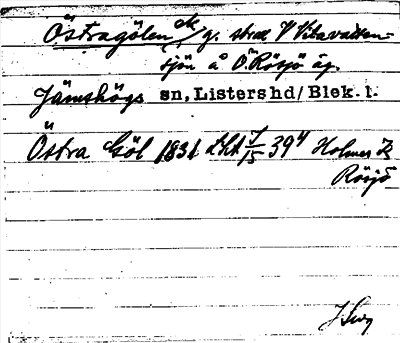 Östragölen g. strax V Vitavatten-
sjön å Ö. Rösjö äg.
Jämshögs sn, Listers hd/Blek. l.
Östra Göl 1831 7/15 39 Holmer
Rösjö